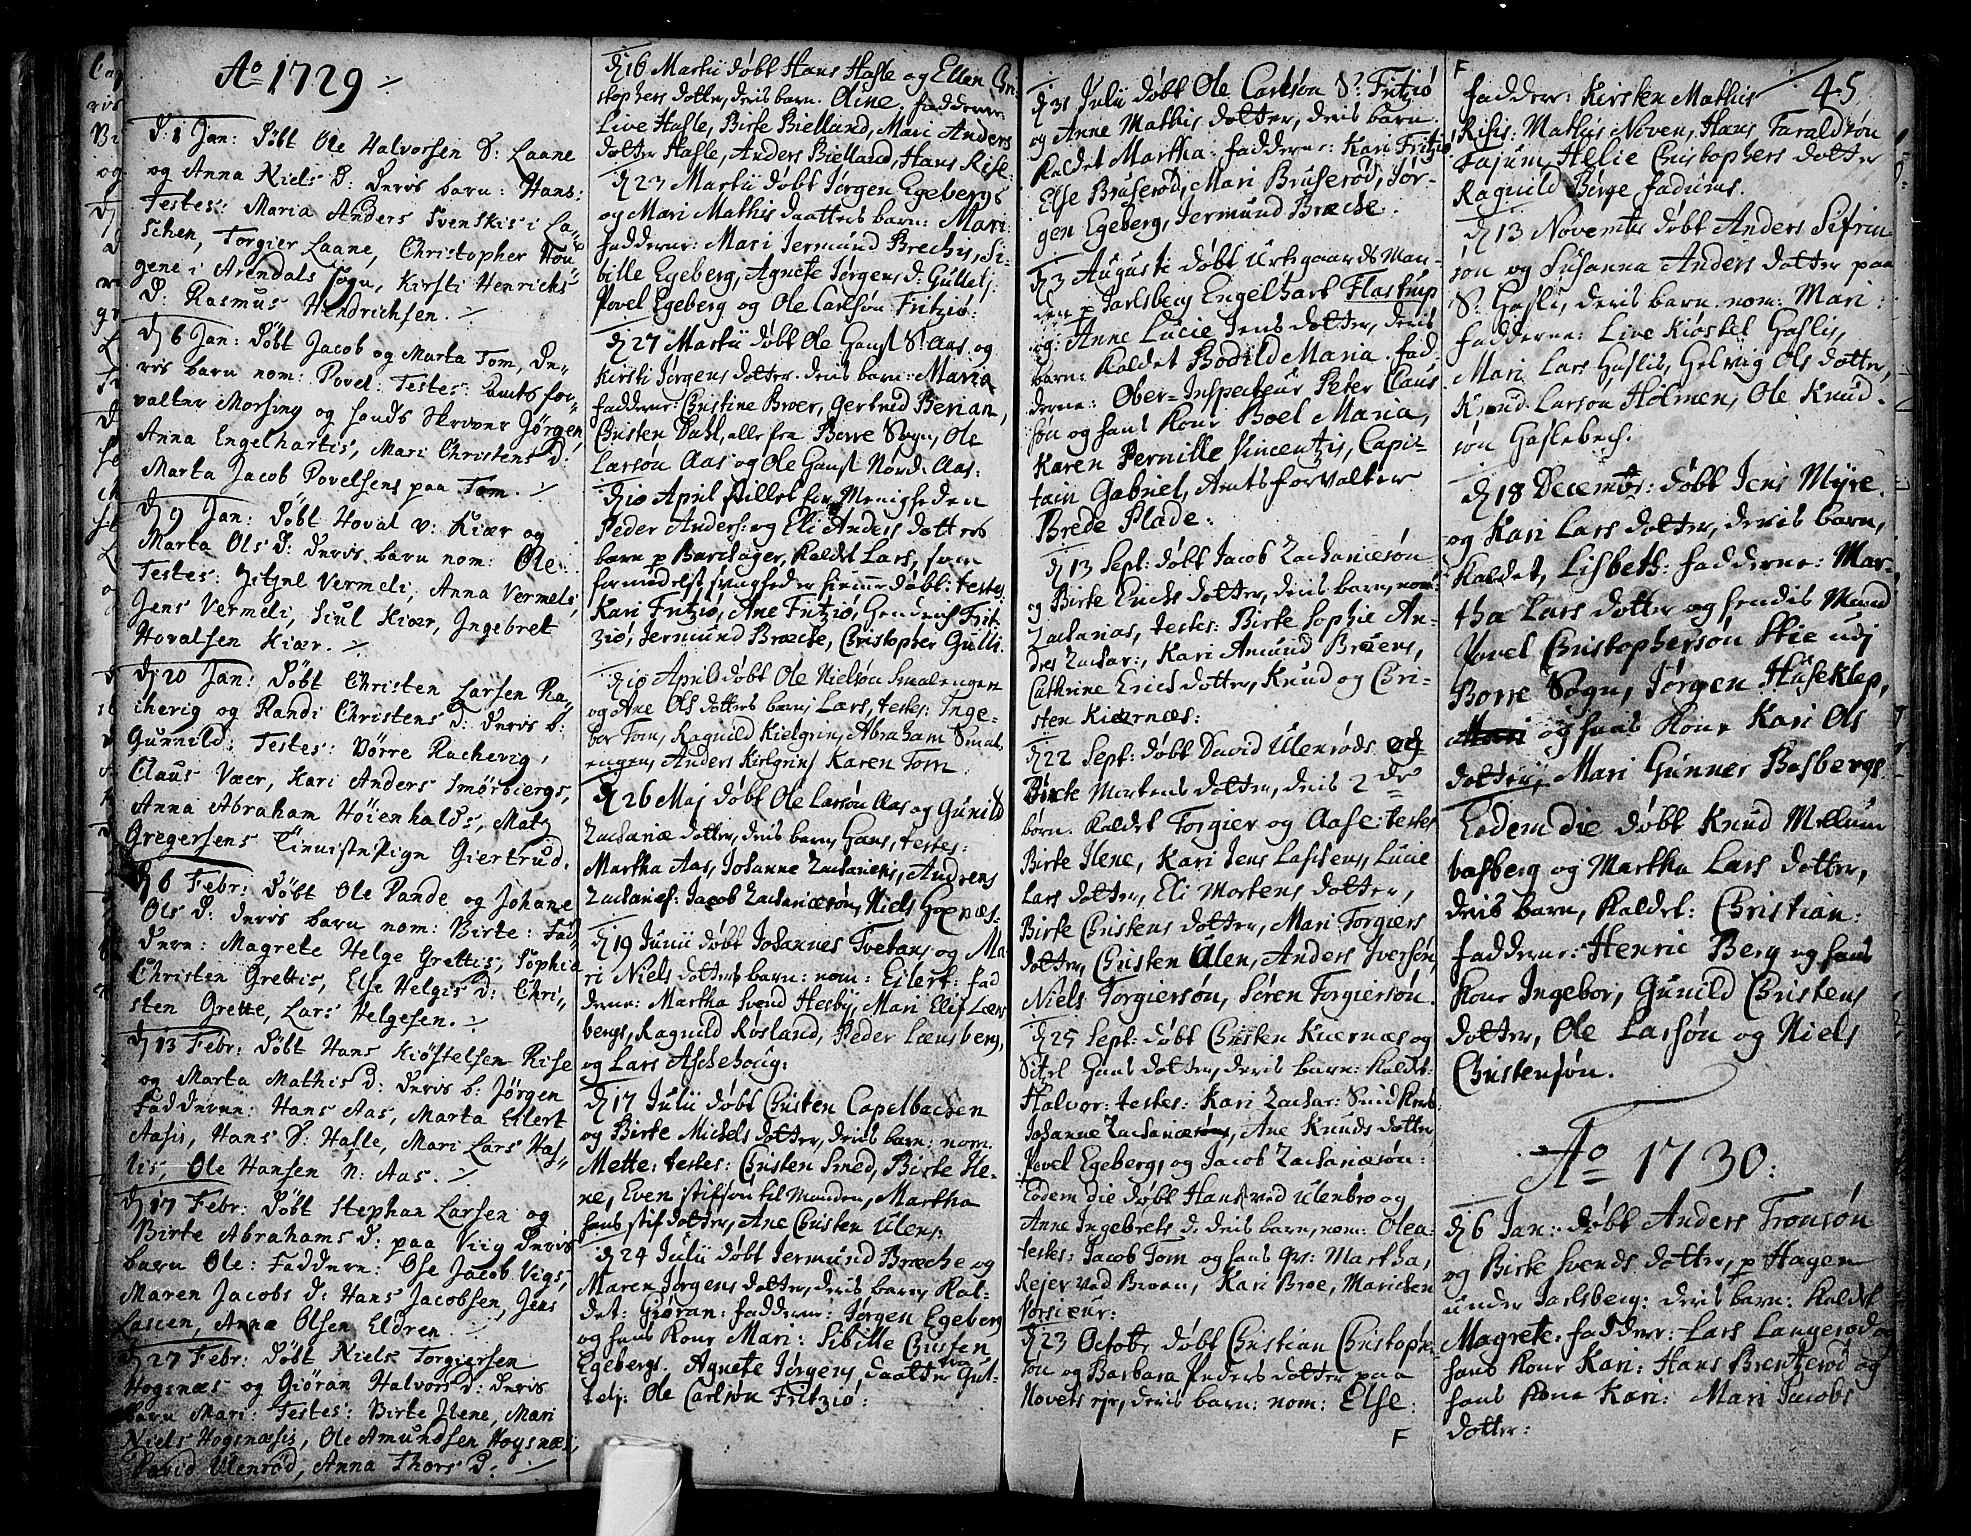 Ao 1729
D: 1 Jan: Døbt Ole Halvorsen S: Laane
og Anna Niels D: deris barn: Hans:
Testes: Maria Anders Svenskis i La-
Schen, Torgier Laane, Christopher Hou-
gene i Arendals Sogn, Kirsti Henrichs
D: Rasmus Hendrichsen.
D 6 Jan: Døbt Jacob og Marta Tom, De-
ris barn nom: Povel: Testes: Amts for-
valter Morsing og fouds Skriver Jørgen,
Anna Engelhartis, Mari Christens D:
Marta Jacob Povelsens paa Tom.
D 9 Jan: Døbt Hoval v: Kiær og
Marta Ols D: deris barn nom: Ole:
Testes: Vermeli, Anna Vermels,
Jens Vermeli, Siul Kiær, Ingebret
Hovalsen Kiær.
D 20 Jan: Døbt Christen Larsen Ra-
cherig og Randi Christens D: deris b:
Gunnild: Testes: Børre Racherig,
Claus Væer, Kari Anders Smørbiergs,
Anna Abraham Høienhalds, Mats
Gregersens Pige Giertrud.
D 6 Febr: Døbt Ole Pande og Johane
Ols D: deris barn nom: Birte: Fad-
dere: Magrete Helge Grettis, Sophia
Christen Grettis, Else Helgis D: Chri-
sten Grette, Lars Helgesen.
D 13 Febr: Døbt Hans Kiøstelsen Rise
og Marta Mathis D: deris b: Jørgen
Faddere: Hans Aas, Marta Eilert
Aasis, Hans S: Hasle, Mari Lars Has-
lis, Ole Hansen N: Aas.
D 17 Febr: Døbt Stephan Larsen og
Birte Abrahams D: paa Viig deris
barn Ole: Faddere: Ose Jacob Vigs,
Maren Jacobs D: Hans Jacobsen, Jens
Lascen, Anna Olsen Eldren.
D 27 Febr: Døbt Niels Torgiersen
Hogsnæs og Giøran Halvors D: deris
barn Mari: Testes: Birte Ilene, Mari
Niels Hogsnæsis, Ole Amundsen Hogsnæs,
David Ulenrød, Anna Thors D:
D 16 Martii døbt Hans Hasle og Ellen Chri-
stophers dotter, deris barn. Oline. fadderne:
Live Hasle, Birte Bielland, Mari Anders
dotter Hasle, Anders Bielland, Hans Rise.
D 23 Martii døbt Jørgen Egebergs
og Mari Mathis daatters barn: Mari:
fadderne: Mari Jermund Brechis, Si-
bille Egeberg, Agnete Jørgens D: Gullet:
Povel Egeberg og Ole Carlsøn Fritziø:
D 27 Martii døbt Ole Hans S: Aas, og
Kirsti Jørgens dotter deris barn: Maria
fadderne: Christine Broer, Gertrud Berian,
Christen Dahl, alle fra Borre Sogn, Ole
Larsøn Aas og Ole Hans Nord: Aas:
D 10 April stillet for Menigheden
Peder Anders: og Eli Anders dotters
barn p Barchager, Kaldt Lars, som
formedelst svaghed er hiemme døbt: testes
Kari Fritziø, Ane Fritziø, Fri-
ziø, Jermund Bræche, Christopher Gulli.
D 10 April døbt Ole Nielsøn Smalengen
og Ane Ols dotters barn, Lars, testes: Inge-
bor Tom, Ragnild Kielgrin, Abraham Smal-
engen, Anders Kielgrin, Karen Tom.
D 26 Maj døbt Ole Larsøn Aas og Gunild
Zachariæ dotter, deris barn, Hans, testes:
Martha Aas, Johanne Zachariens, Andreas
Zacharies: Jacob Zachariæsøn, Niels Hognæs:
D 19 Junii døbt Johannes Tvetans og Ma-
ri Niels dotters barn: nom: Ejlert: fad
derne: Martha Svend Hesby, Mari Elif Læns
bergs, Ragnild Røsland, Peder Lænsberg,
og Lars Aschehoug:
D 17 Julii døbt Christen Capelbachen
og Birte Michels dotter, deris barn: nom:
Mette: testes: Christen Smed, Birte Ile-
ne, Even stifsøn til Manden, Martha
hans stif dotter, Ane Christen Ulens:
D 24 Julii døbt Jermund Bræche og
Maren Jørgens dotter, deris barn, Kal-
det: Giøran: fadderne: Jørgen Egeberg
og hans Kone Mari: Sibille Christen
Egebergs. Agnete Jørgens daatter fra Gul-
teli: Ole Carlsøn Fritziø:
D 31 Julii døbt Ole Carlsøn S: Fritziø
og Anne Mathis dotter, deris barn
Kaldet Martha. fadderne: Kari Fritziø,
Else Bruserød, Mari Bruserød, Jør-
gen Egeberg, Jermund Bræche.
D 3 Augusti døbt Urtegaards Man-
den p Jarlsberg Engelhart Flastrup
og: Anne Lucie Jens dotter, deris
barn: Kaldet Bodild Maria. fad-
derne: Ober-Inspecteur Peter Claus
søn og hans Kone Boel Maria,
Karen Pernille Vincentzis, Capi-
tain Gabriel, Amts forvalter
Brede Plade:
D 13 Sept: døbt Jacob Zachariæsøn
og Birte Erichs dotter, deris barn, nom:
Zacharias, testes: Birte Sophie An-
dres Zachar:, Kari Amund Brøens,
Cathrine Erichs dotter, Knud og Chri-
sten Kiærnæs:
D 22 Sept: døbt David Ulenrøds og
Birte Mortens dotter, deris 2 de
børn. Kaldet Torgier og Aase: testes
Birte Ilene, Kari Jens Lassens, Lucie
Lars dotter, Eli Mortens dotter,
Birte Christens dotter, Mari Torgiers
dotter, Christen Ulen, Anders Iversøn,
Niels Torgiersøn, Søren Torgiersøn.
D 25 Sept: døbt Christen Kiernæs og
Sitzel Hans dotter, deris barn: Kaldt:
Halvor: testes: Kari Zachar: Smidsrød
Johanne Zachariæsøns, Ane Knuds dotter,
Povel Egeberg, og Jacob Zachariæsøn:
Eodem die døbt Hans ved Ulenbro og
Anne Ingebrets d. deris barn, nom: Olea:
testes: Jacob Tom og hans qv: Martha,
Rejer ved Broen, Kari Broe, Marichen
Porsieur:
D 23 Octobr døbt Christian Christopher-
søn og Barbara Peders dotter paa
Novets eje, deris barn: nom: Else:
F
F
45
fadder: Kirsten Mathis
Risis: Mathis Noven, Hans Taraldsøn
Fajum, Allie Christophers dotter
Ragnild Børge fadums.
D 13 Novembr døbt Anders Sifrin
søn og Susanna Anders dotter paa
S: Hasli, deris barn nom: Mari:
fadderne: Live Kiøstel Haslis,
Mari Lars Haslis, Helvig Ols dotter,
Knud Larson Holmen, Ole Knud-
søn Haslebech.
D 18 Decembr: døbt Jens Myre
og Kari Lars dotter, deris barn,
Kaldet, Lisbeth: fadderne: Mar-
tha Lars dotter og hendis Mand
Povel Christophersøn Skie udj
Borre Sogn, Jørgen Huseklep,
og hans Kone Kari Ols
dotter, Mari Gunner Basbergs
Eodem die døbt Knud Mellum
basberg og Martha Lars dotter,
deris barn, Kaldet: Christian:
fadderne: Henric Berg og hans
Kone Ingebor, Gunild Christens
dotter, Ole Larsøn og Niels
Christensøn.
Ao 1730:
D 6 Jan: døbt Anders Tronsøn
og Birte Svends dotter, p Hagen
under Jarlsberg: deris barn: Kaldet
Magrete. fadder: Lars Langerød og
hans Kone Kari: Hans Brentzerød og
hans Kone Kari: Mari Jacobs
dotter: